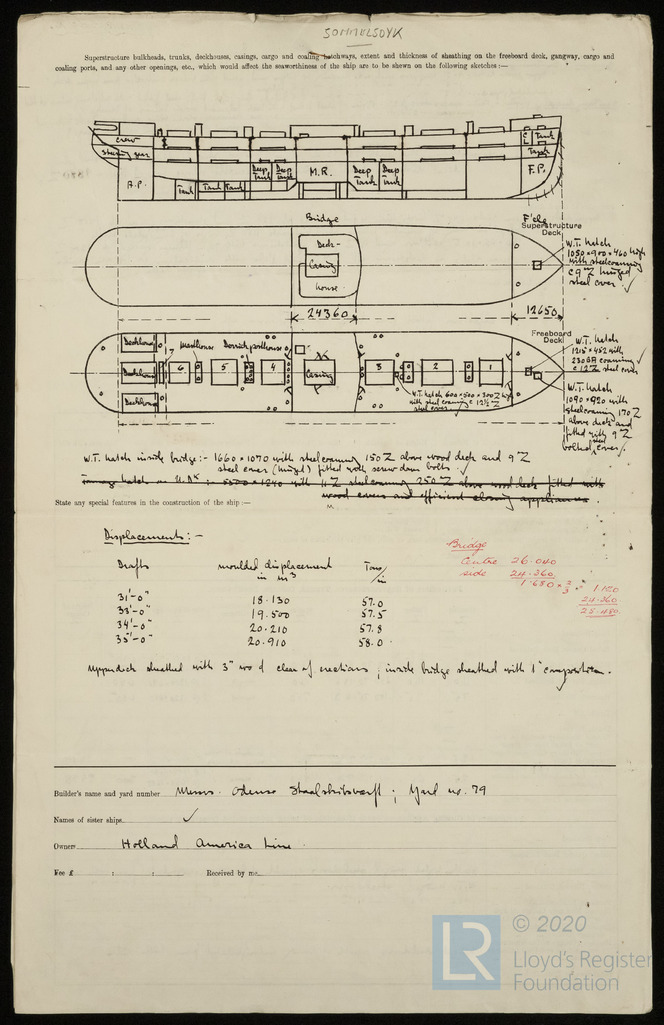 SOMMELSDYK
Superstructure bulkheads, trunks, deckhouses, casings, cargo and coaling hatchways, extent and thickness of sheathing on the freeboard deck, gangway, cargo and
coaling ports, and any other openings, etc., which would affect the seaworthiness of the ship are to be shewn on the following sketches:—
crew
steering gear
A.P.
Tank
Tank
Tank
Deep Tank
Deep Tank
M.R.
Deep Tank
Deep Tank
C L
Tank
Tank
F.P.
Bridge
Deck-
Casing
house
F'cle
Superstructure
Deck
W.T. hatch
1050 × 900 × 460 high
with steel coaming
& 9 Z hinged
steel cover ✓
24360
12650
Freeboard
Deck
Deckhouse
Deckhouse
Deckhouse
Masthouse
Derrick posthouse
6
5
4
Casing
3
2
1
W.T. hatch 600 × 500 × 300 Z high
with steel coaming & 12½ Z
steel cover ✓
W.T. hatch
1215 × 452 with
230 BA coaming
& 12 Z steel cover
W.T. hatch
1090 × 920 with
steel coaming 170 Z
above deck and
fitted with 9 Z
steel
bolted cover ✓
W.T. hatch inside bridge:- 1660 × 1070 with steel coaming 150 Z above wood deck and 9 Z
steel cover (hinged) fitted with screw down bolts. ✓
hatch on U.Dk :- 5300 × 1240 with 11 Z steel coaming 250 Z above wood deck fitted with
wood covers and efficient closing appliances.
State any special features in the construction of the ship:—
Displacements:-
Drafts moulded displacement Tons/in
in m³
31'-0" 18.130 57.0
33'-0" 19.500 57.5
34'-0" 20.210 57.8
35'-0" 20.910 58.0
Bridge
Centre 26.040
side 24.360
1.680 × 2/3 = 1.120
24.360
25.480
Upperdeck sheathed with 3" wood clear of erections; inside bridge sheathed with 1" composition.
Builder's name and yard number Messrs. Odense Staalskibsværft; Yard no. 79
Names of sister ships ✓
Owners Holland America Line
Fee £ : : Received by me
© 2020
LR
Lloyd's Register
Foundation